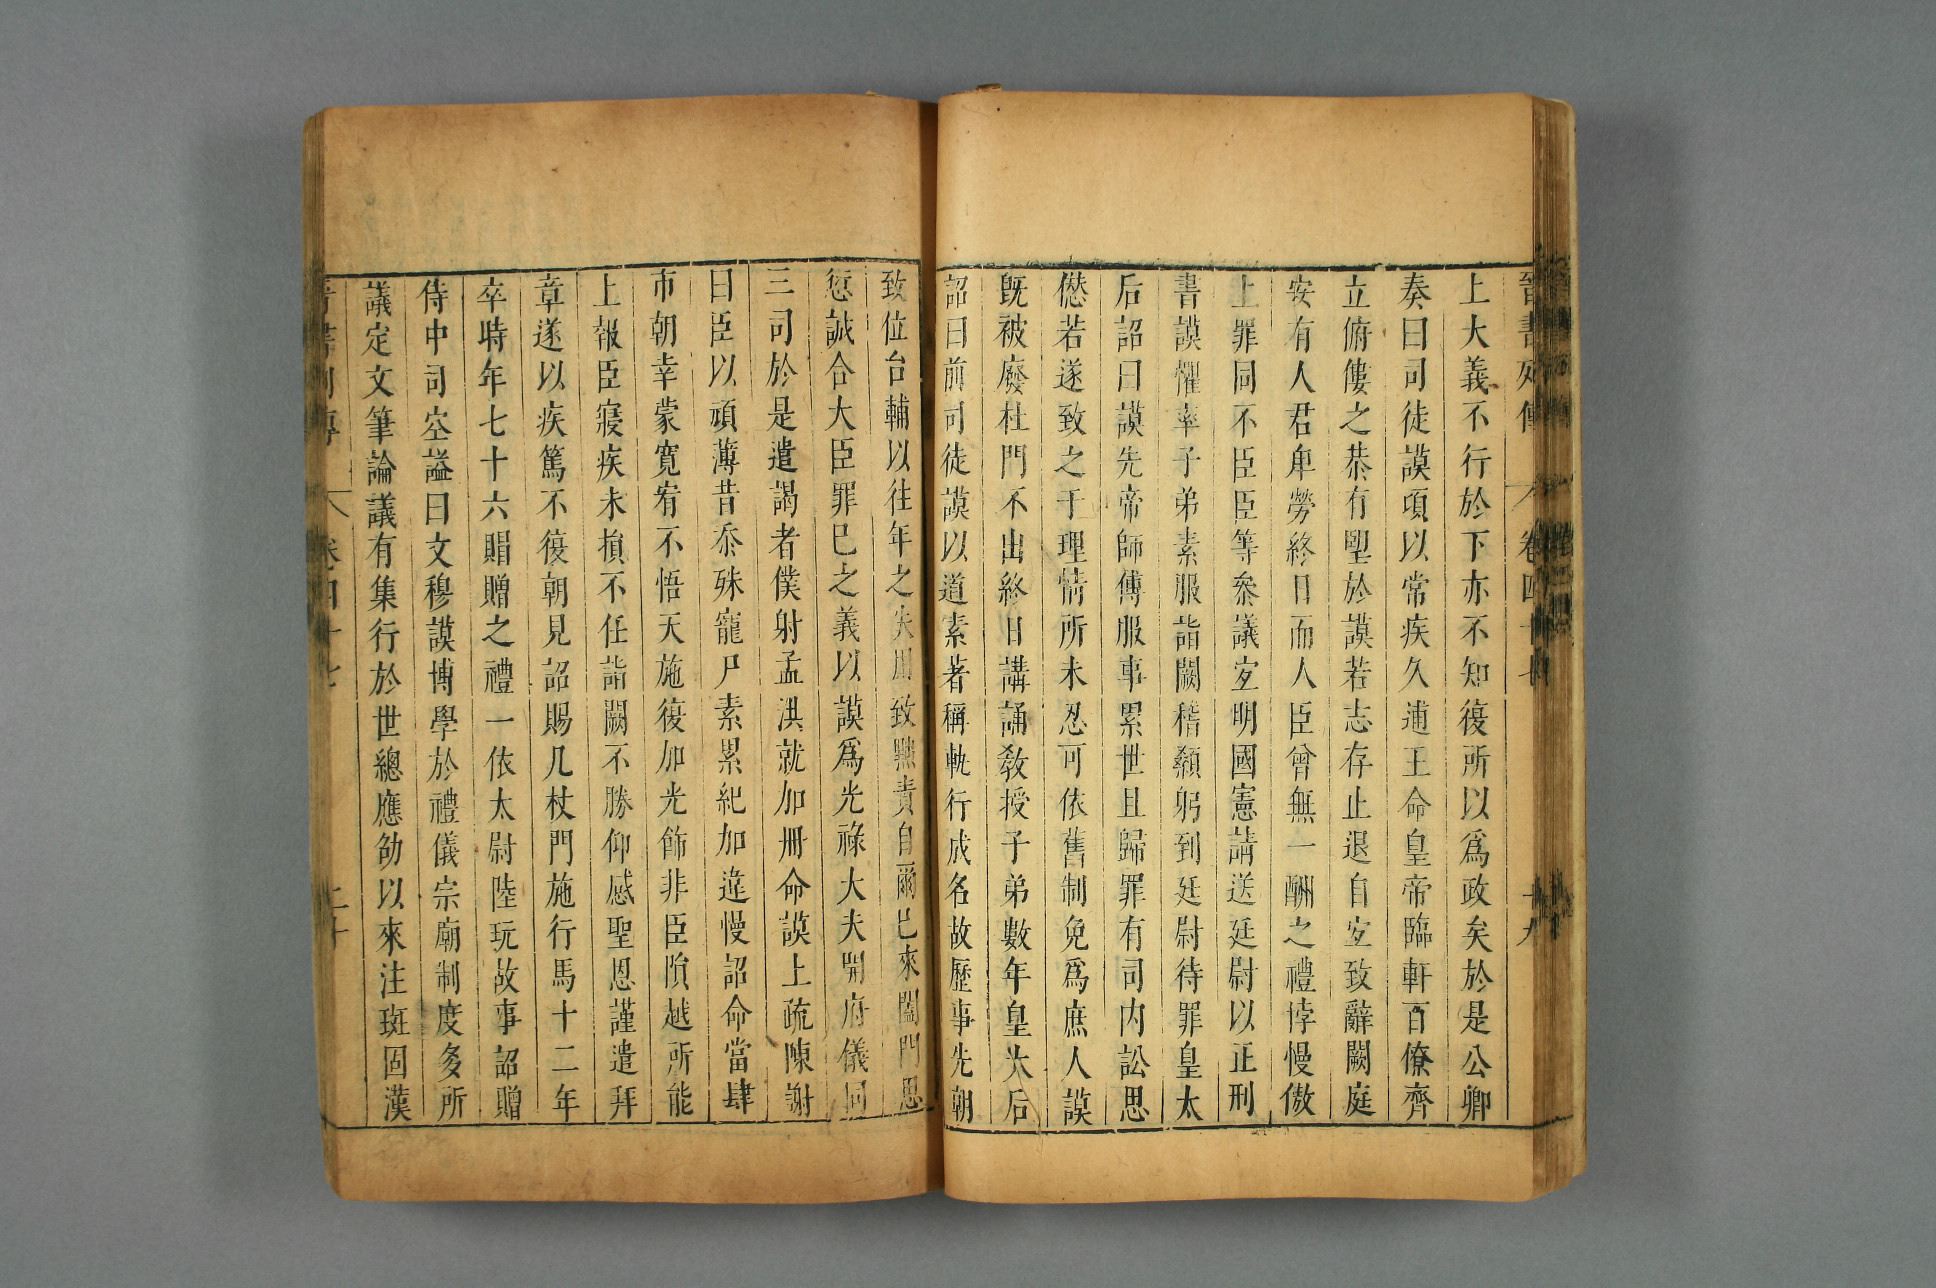 晉書列傳 卷四十七 十九
上大義不行於下亦不知復所以爲政矣於是公卿
奏曰司徒謨頃以常疾久逋王命皇帝臨軒百僚齊
立俯僂之恭有望於謨若志存止退自宜致辭闕庭
安有人君卑勞終日而人臣曾無一酬之禮悖慢傲
上罪同不臣臣等參議宜明國憲請送廷尉以正刑
書謨懼率子弟素服詣闕稽顙躬到廷尉待罪皇太
后詔曰謨先帝師傅服事累世且歸罪有司内訟思
愆若遂致之于理情所未忍可依舊制免爲庶人謨
既被廢杜門不出終日講誦教授子弟數年皇太后
詔曰前司徒謨以道素著稱軌行成名故歷事先朝
致位台輔以往年之失用致黜責自爾已來闔門思
愆誠合大臣罪已之義以謨爲光祿大夫開府儀同
三司於是遣謁者僕射孟洪就加冊命謨上疏陳謝
曰臣以頑薄昔忝殊寵尸素累紀加違慢詔命當肆
市朝幸蒙寬宥不悟天施復加光飾非臣隕越所能
上報臣寢疾未損不任詣闕不勝仰感聖恩謹遣拜
章遂以疾篤不復朝見詔賜几杖門施行馬十二年
卒時年七十六賵贈之禮一依太尉陸玩故事詔贈
侍中司空謚曰文穆謨博學於禮儀宗廟制度多所
議定文筆論議有集行於世總應劭以來注班固漢
晉書列傳 卷四十七 二十